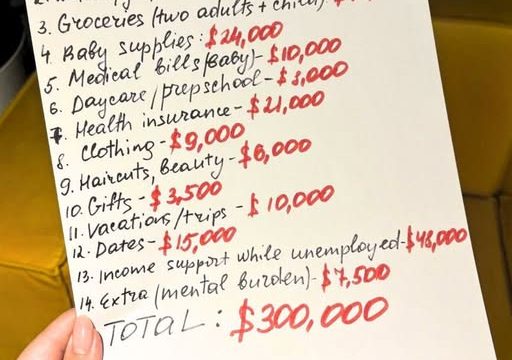 3. Groceries (two adults + child)
4. Baby supplies: $24,000
5. Medical bills (baby)- $10,000
6. Daycare/prepschool - $3,000
7. Health insurance - $21,000
8. Clothing - $9,000
9. Haircuts, beauty - $6,000
10. Gifts - $3,500
11. Vacations/trips - $10,000
12. Dates - $15,000
13. Income support while unemployed - $48,000
14. Extra (mental burden) - $7,500
TOTAL: $300,000